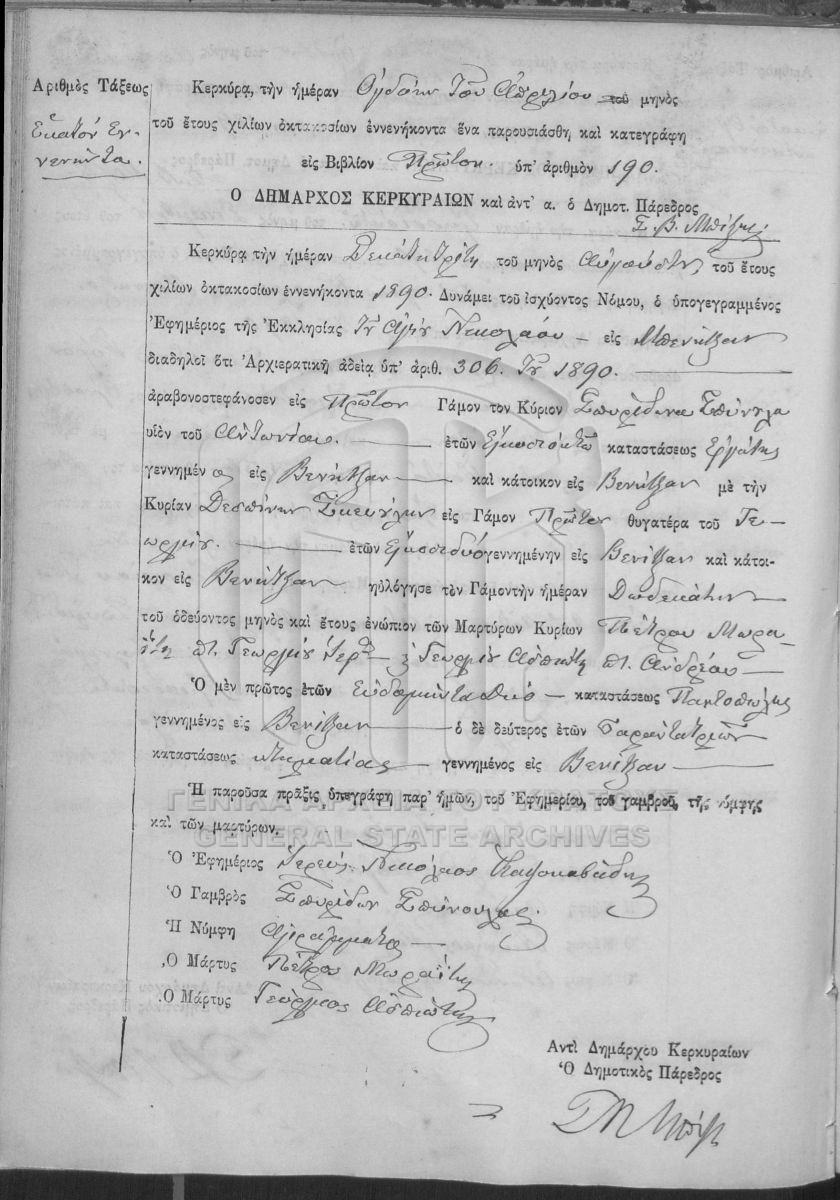 Ἀριθμὸς Τάξεως
Ἑκατόν Ἐν-
νενῆντα.
Κερκύρᾳ, τὴν ἡμέραν Ὀγδόην τοῦ Ἀπριλίου τοῦ μηνὸς
τοῦ ἔτους χιλίων ὀκτακοσίων ἐννενήκοντα ἕνα παρουσιάσθη καὶ κατεγράφη
εἰς Βιβλίον Πρῶτον. ὑπ' ἀριθμὸν 190.
Ο ΔΗΜΑΡΧΟΣ ΚΕΡΚΥΡΑΙΩΝ καὶ ἀντ' α. ὁ Δημοτ. Πάρεδρος
Σ. Β.
Κερκύρᾳ τὴν ἡμέραν Δεκάτη τρίτη τοῦ μηνὸς Αὐγούστου τοῦ ἔτους
χιλίων ὀκτακοσίων ἐννενήκοντα 1890. Δυνάμει τοῦ ἰσχύοντος Νόμου, ὁ ὑπογεγραμμένος
Ἐφημέριος τῆς Ἐκκλησίας Τοῦ Ἁγίου Νικολάου – εἰς Μπενήτζαν
διαδηλοῖ ὅτι Ἀρχιερατικῇ ἀδείᾳ ὑπ' ἀριθ. 306. Τοῦ 1890.
ἀραβονοστεφάνοσεν εἰς Πρῶτον Γάμον τον Κύριον Σπυρίδωνα Σπίνουλα
υἱὸν τοῦ Ἀντωνίου. ἐτῶν Εἴκοσι ὀκτὼ καταστάσεως Ἐργάτης
γεννημέν ο εἰς Βενήτζαν καὶ κάτοικον εἰς Βενήτζαν μὲ τὴν
Κυρίαν Δεσπίνην εἰς Γάμον Πρῶτον θυγατέρα τοῦ Γε-
ωργίου. ἐτῶν Εἴκοσι δυὸ γεννημένην εἰς Βενίτζαν καὶ κάτοι-
κον εἰς Βενήτζαν ηὐλόγησε τὸν Γάμον τὴν ἡμέραν Δωδεκάτην
τοῦ ὁδεύοντος μηνὸς καὶ ἔτους ἐνώπιον τῶν Μαρτύρων Κυρίων Πέτρου Μωρα-
ΐτη π. Γεωργίου Ἱερ. κ Γεωργίου Ἀσπιώτη π. Ἀνδρέου
Ὁ μὲν πρῶτος ἐτῶν Ἑυδομῆντα δυό – καταστάσεως Παντοπώλης
γεννημένος εἰς Βενίτζαν ὁ δὲ δεύτερος ἐτῶν Σαράντα τριῶν
καταστάσεως κτηματίας γεννημένος εἰς Βενίτζαν
Ἡ παροῦσα πρᾶξις ὑπεγράφη παρ' ἡμῶν, τοῦ Ἐφημερίου, τοῦ γαμβροῦ, τῆς νύμφης
καὶ τῶν μαρτύρων.
ΓΕΝΙΚΑ ΑΡΧΕΙΑ ΤΟΥ ΚΡΑΤΟΥΣ
GENERAL STATE ARCHIVES
Ὁ Ἐφημέριος Ἱερεύς Νικόλαος
Ὁ Γαμβρὸς Σπυρίδων Σπίνουλας.
Ἡ Νύμφη Ἀγράμματος
Ὁ Μάρτυς Πέτρου Μωραΐτη
Ὁ Μάρτυς Γεώργιος Ἀσπιώτης
Ἀντὶ Δημάρχου Κερκυραίων
Ὁ Δημοτικὸς Πάρεδρος